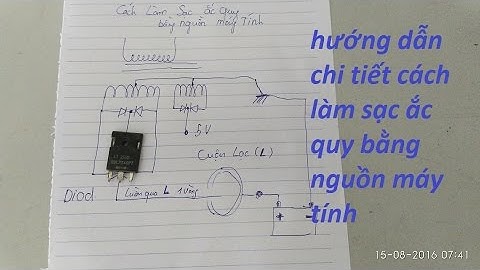 Cách Làm Sạc ắc Quy
bằng nguồn máy Tính
hướng dẫn
chi tiết cách
làm sạc ắc
quy bằng
nguồn máy
tính
5V
Cuộn Lọc (L)
Diod
Luồn qua L 1 Vòng
+ -
15-08-2016 07:41